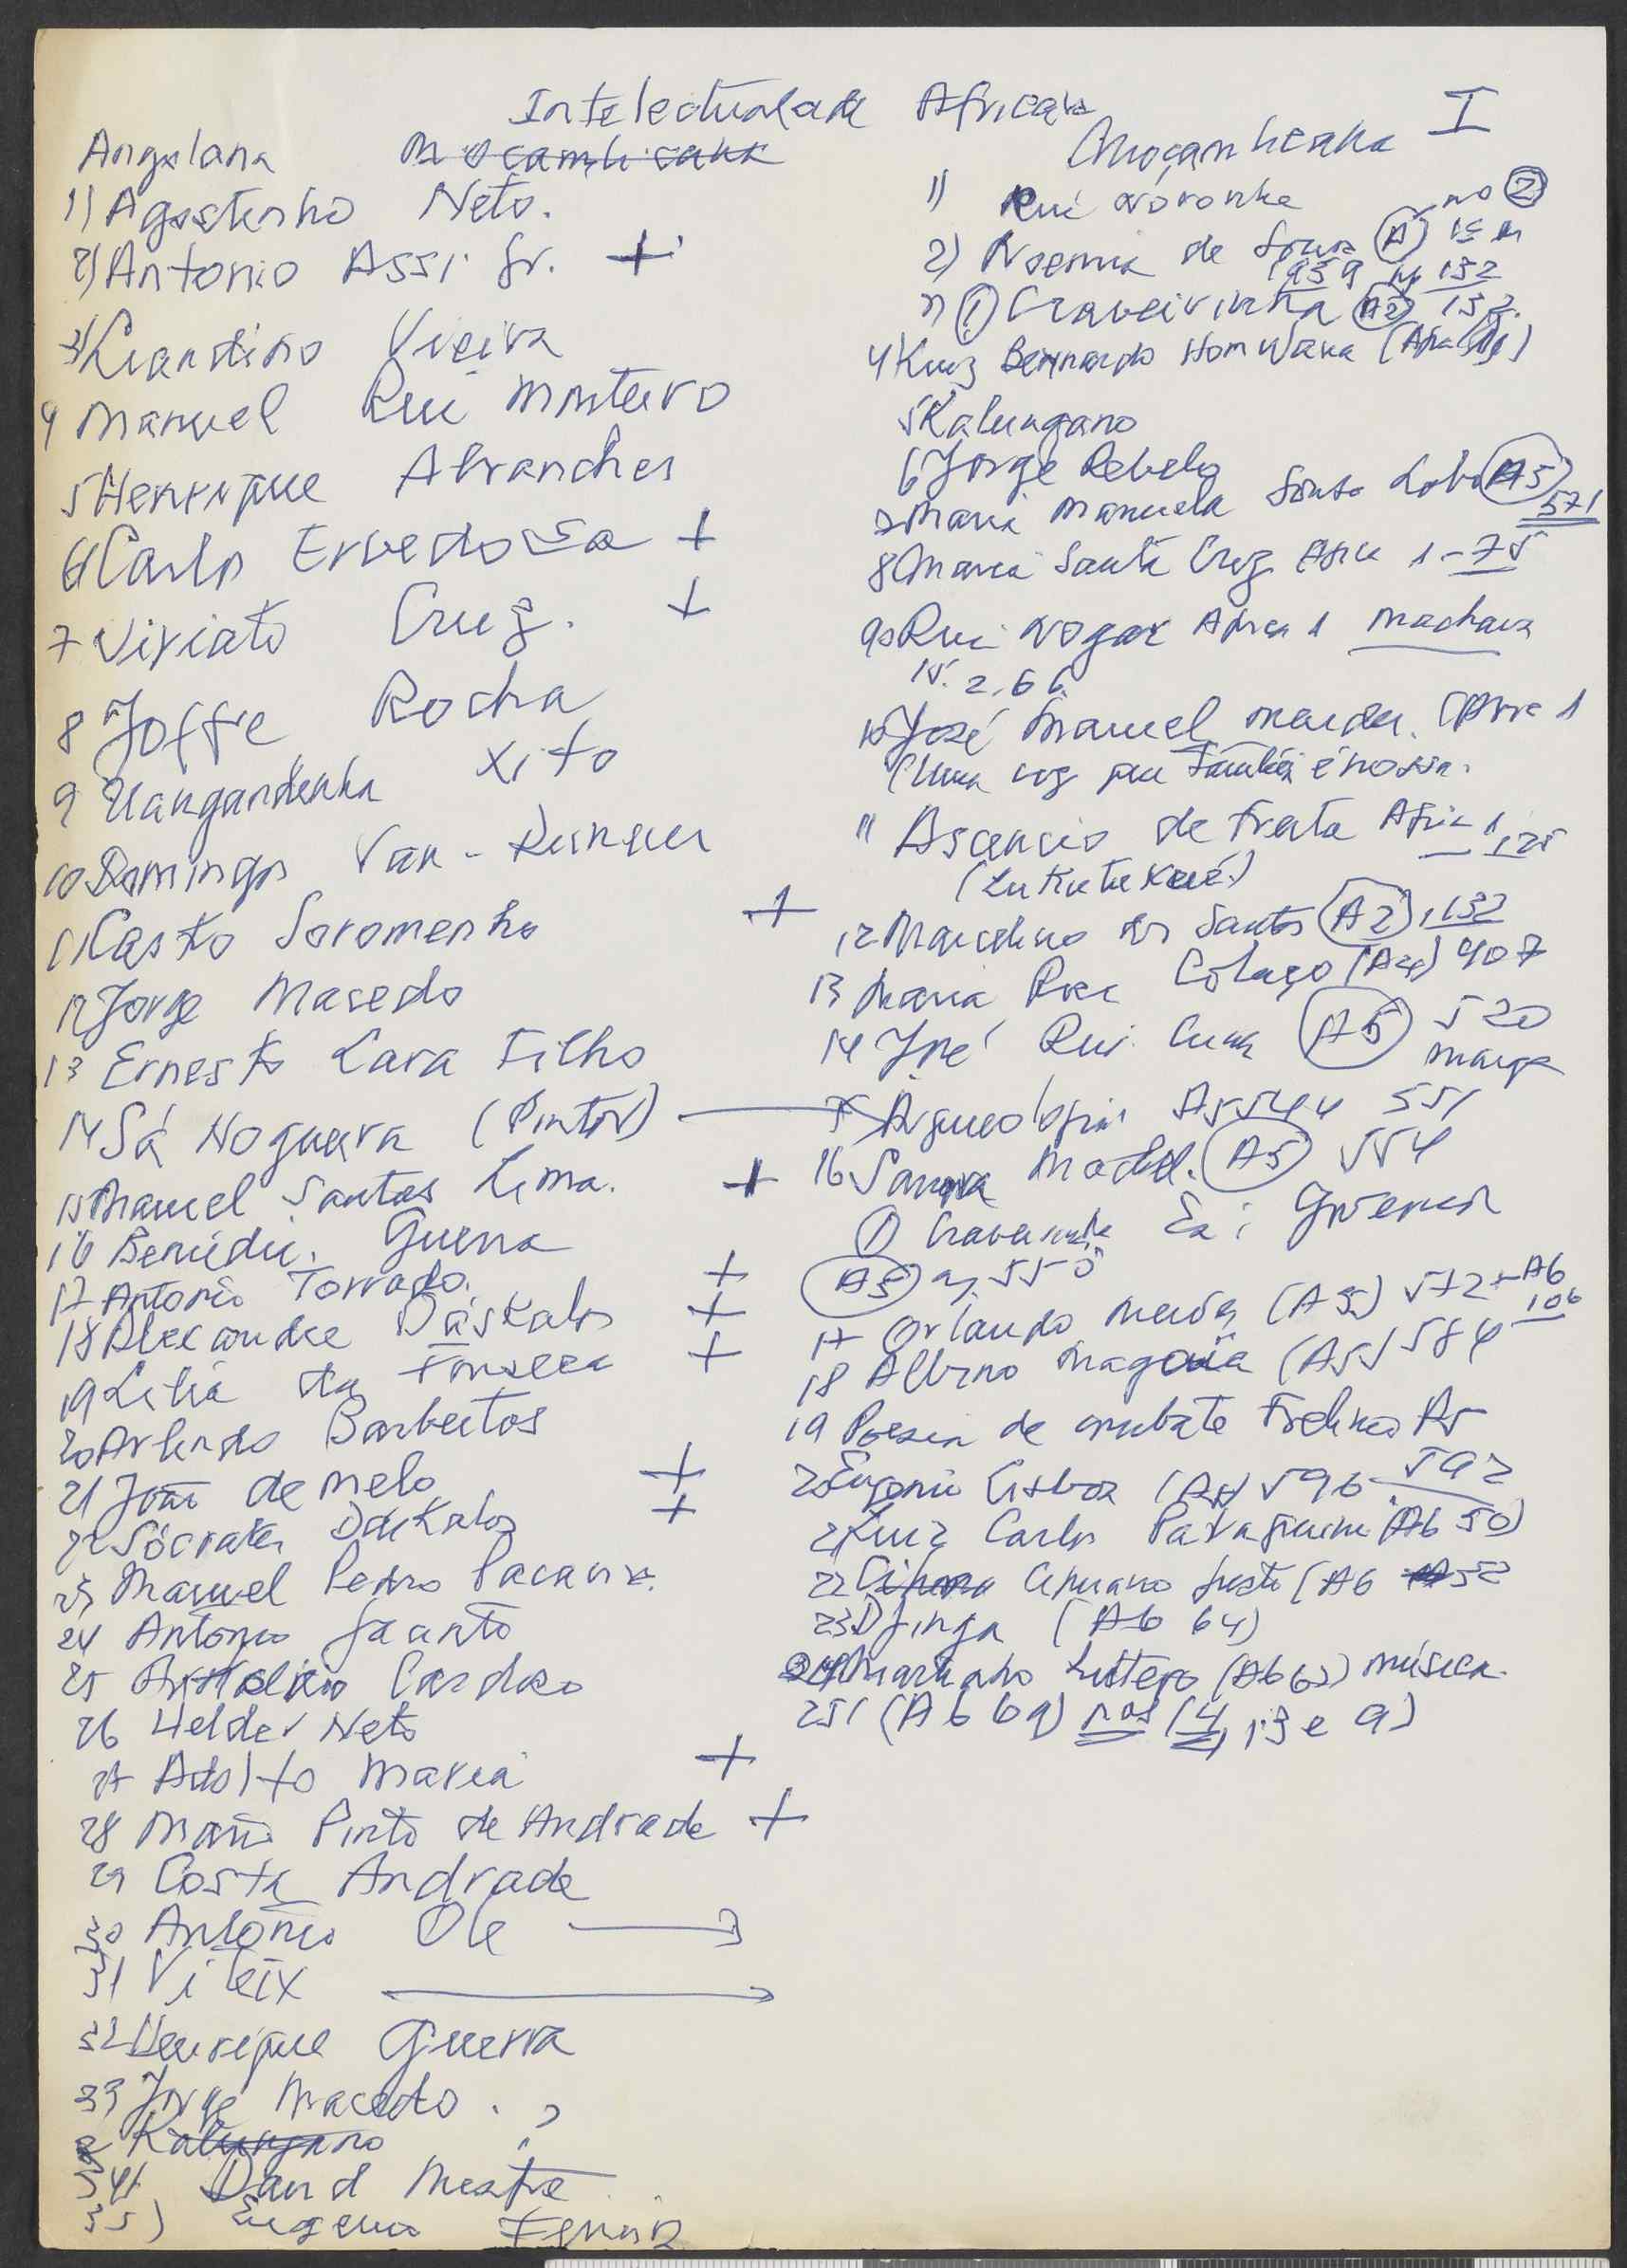 Intelectualidade Africana
I
Angolana
Moçambicana
1) Agostinho Neto.
2) Antonio Assi Jr. +
3) Luandino Vieira
4 Manuel Rui Monteiro
5 Henrique Abranches
6 Carlos Ervedosa +
7 Viriato Cruz. +
8 Joffre Rocha
9 Uanganhenha Xito
10 Domingos Van-Dunem
11 Castro Soromenho +
12 Jorge Macedo
13 Ernesto Lara Filho
14 Sá Nogueira (Pintor)
15 Manuel Santos Lima. +
16 Guerra
17 Antonio Torrado. +
18 Alexandre Dáskalos +
19 Lilia da Fonseca +
20 Arlindo Barbeitos
21 João de Melo +
22 Sócrates Dáskalos +
23 Manuel Pedro Pacavira.
24 Antonio Jacinto
25 Cardoso
26 Helder Neto
27 Adolfo Maria +
28 Mario Pinto de Andrade +
29 Costa Andrade
30 Antonio Ole
31 Viteix
32 Henrique Guerra
33 Jorge Macedo. ?
Kalungano
34 David Mestre
35) Eugenia
Moçambicana
1) Rui Noronha no 2
2) Noemia de Sousa (A)
132
3) (1) Craveirinha (A2) 132.
4 Luiz Bernardo Honwana
5 Kalungano
6 Jorge Rebelo
7 Maria Manuela Sousa Lobo (A5)
571
8 Maria Santa Cruz Africa 1-75
9 Rui Nogar Africa 1 Machava
15.2.66.
10 José Manuel Mendes. Africa 1
(Uma voz que Também é nossa.
11 Ascencio de Freita Africa 1 125
12 Marcelino dos Santos (A2) 132
13 Maria Rosa Colaço (A4) 407
14 José Rui Cunha (A5) 520
15 Arqueologia A5 544 551
16 Model. (A5) 554
(1) Craveirinha
(A5) 550
17 Orlando Mendes (A5) 572 - A6
106
18 Albino Magaia (A5) 584
19 Poesia de combate Frelimo A5
592
20 Eugenio Lisboa (A5) 596
21 Luiz Carlos Patraquim (A6 50)
22 Cipriano Justo (A6 52
23 Djinga (A6 64)
24 (A6 63) música.
25 (A6 69) nos 14, 13 e 9)